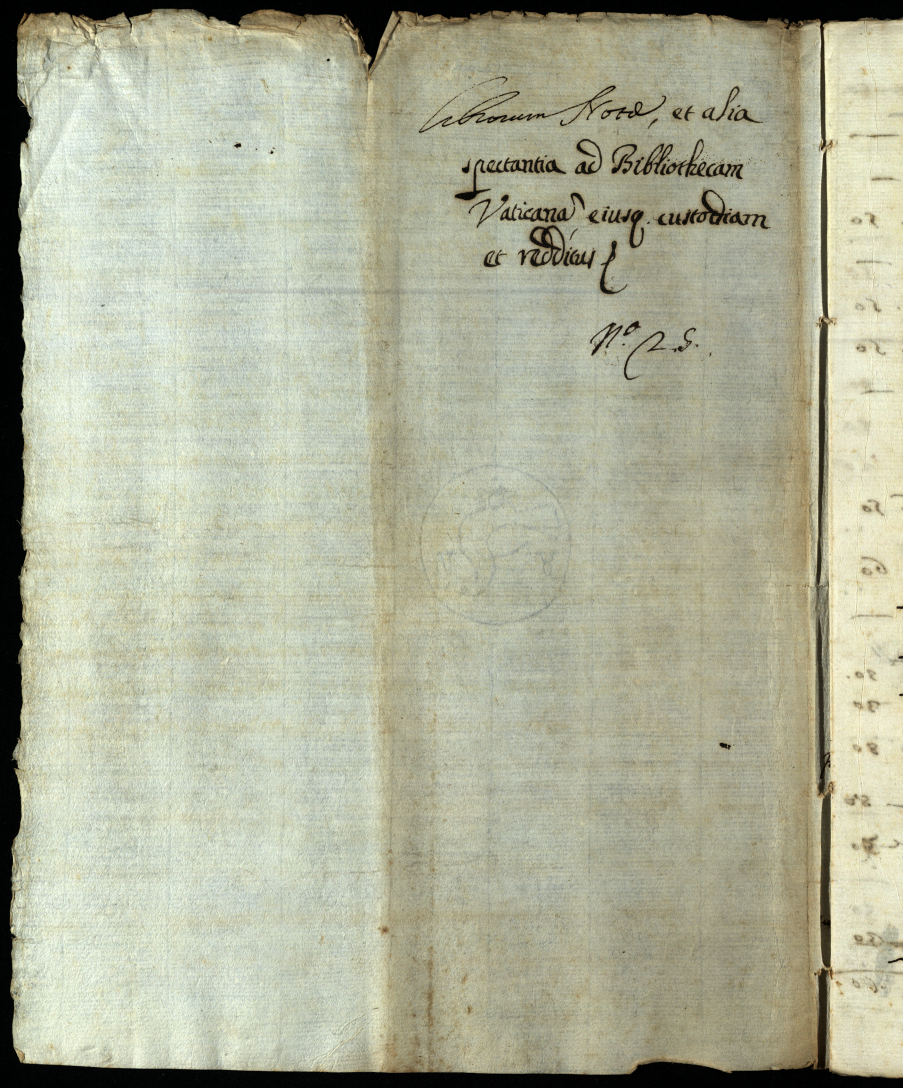 Librorum Notæ, et alia
spectantia ad Bibliothecam
Vaticanā eiusq. custodiam
et redditus
Nº. 25.